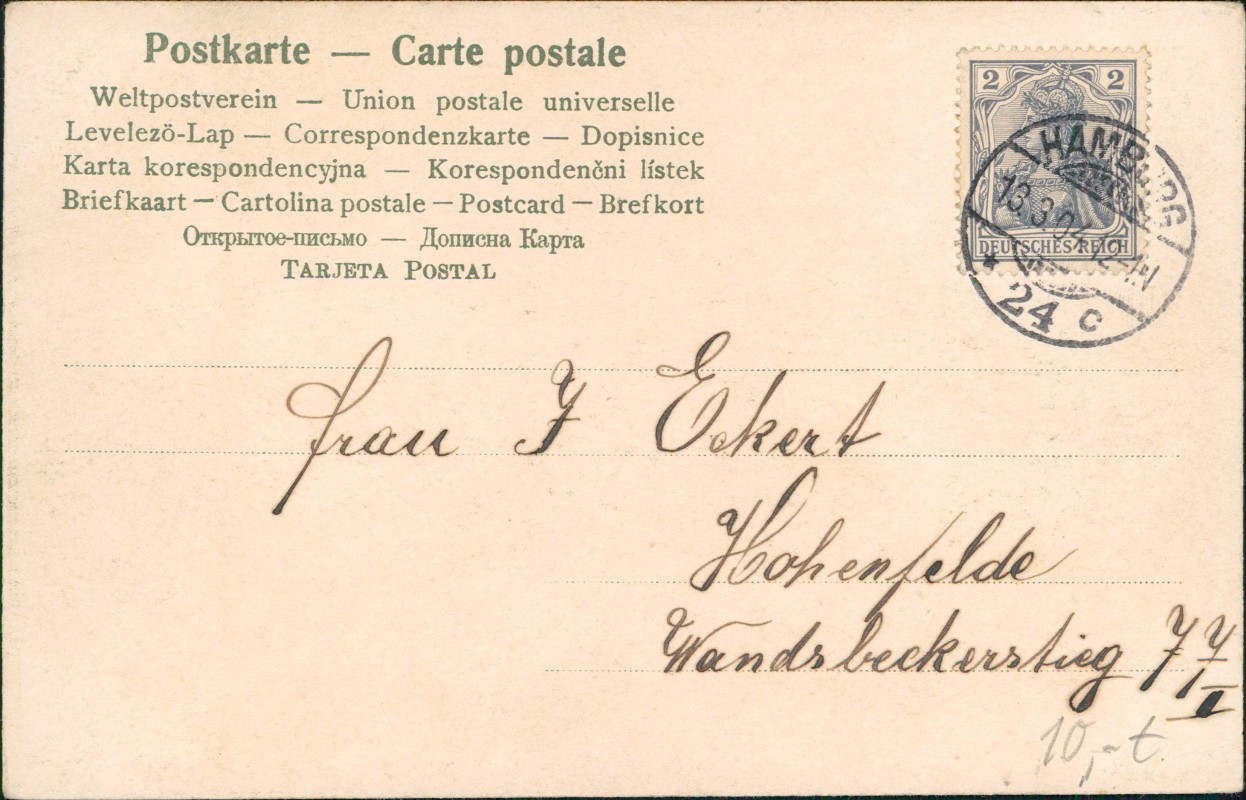 Postkarte — Carte postale
Weltpostverein — Union postale universelle
Levelezö-Lap — Correspondenzkarte — Dopisnice
Karta korespondencyjna — Korespondenčni lístek
Briefkaart — Cartolina postale — Postcard — Brefkort
Открытое-письмо — Дописна Карта
TARJETA POSTAL
2 2
DEUTSCHES REICH
HAMBURG
13.3.04.12-1N
* 24 c
Frau J Eckert
Hohenfelde
Wandsbeckerstieg 77
10,- t.